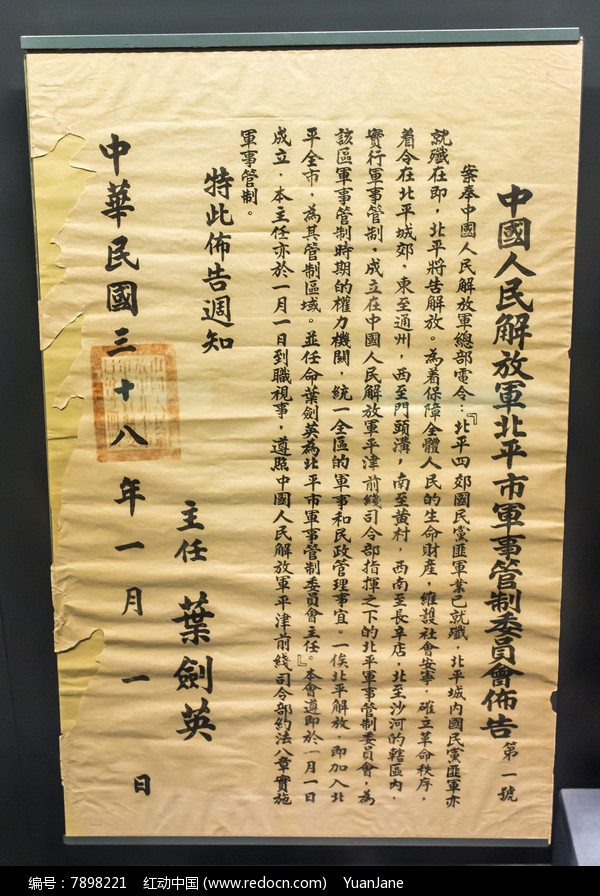 中國人民解放軍北平市軍事管制委員會佈告 第一號
案奉中國人民解放軍總部電令：『北平四郊國民黨匪軍業已就殲，北平城内國民黨匪軍亦
就殲在即，北平將告解放。為着保障全體人民的生命財產，維護社會安寧，確立革命秩序，
着令在北平城郊，東至通州，西至門頭溝，南至黄村，西南至長辛店，北至沙河的轄區内，
實行軍事管制，成立在中國人民解放軍平津前綫司令部指揮之下的北平軍事管制委員會，為
該區軍事管制時期的權力機關，統一全區的軍事和民政管理事宜。一俟北平解放，即加入北
平全市，為其管制區域。並任命葉劍英為北平市軍事管制委員會主任。』本會遵即於一月一日
成立，本主任亦於一月一日到職視事，遵照中國人民解放軍平津前綫司令部約法八章實施
軍事管制。
特此佈告週知
主任 葉劍英
中華民國三十八年一月一日
编号：7898221 红动中国 (www.redocn.com) YuanJane